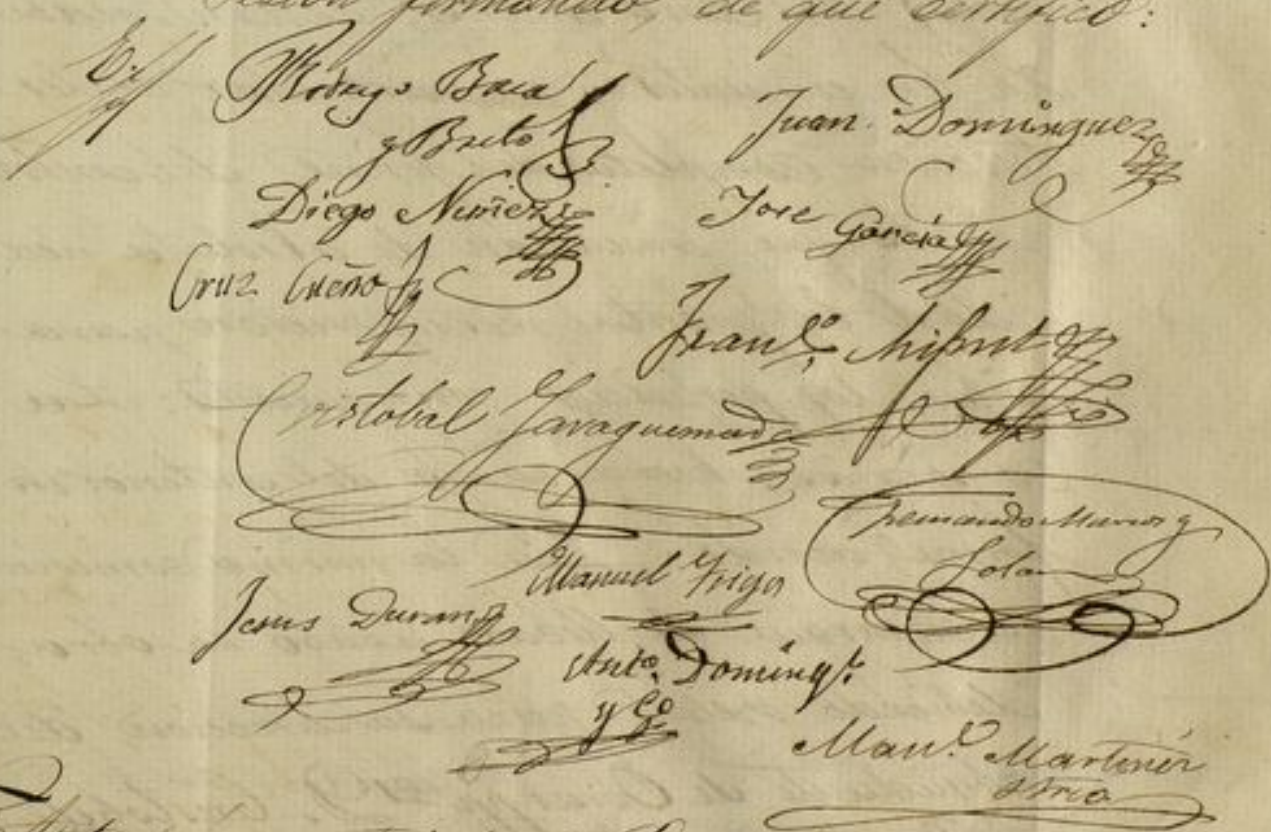 firmando, de que certifico:
Rodrigo Baca
y Brito
Juan Dominguez
Diego Nuñez
Jose Garcia
Cruz Cueño
Fran.co
Cristobal Jaraquemada
Fernando Marcos y
Solan
Manuel Trigo
Jesus Duran
Ant.o Doming.z
y G.o
Man.l Martinez
Strio